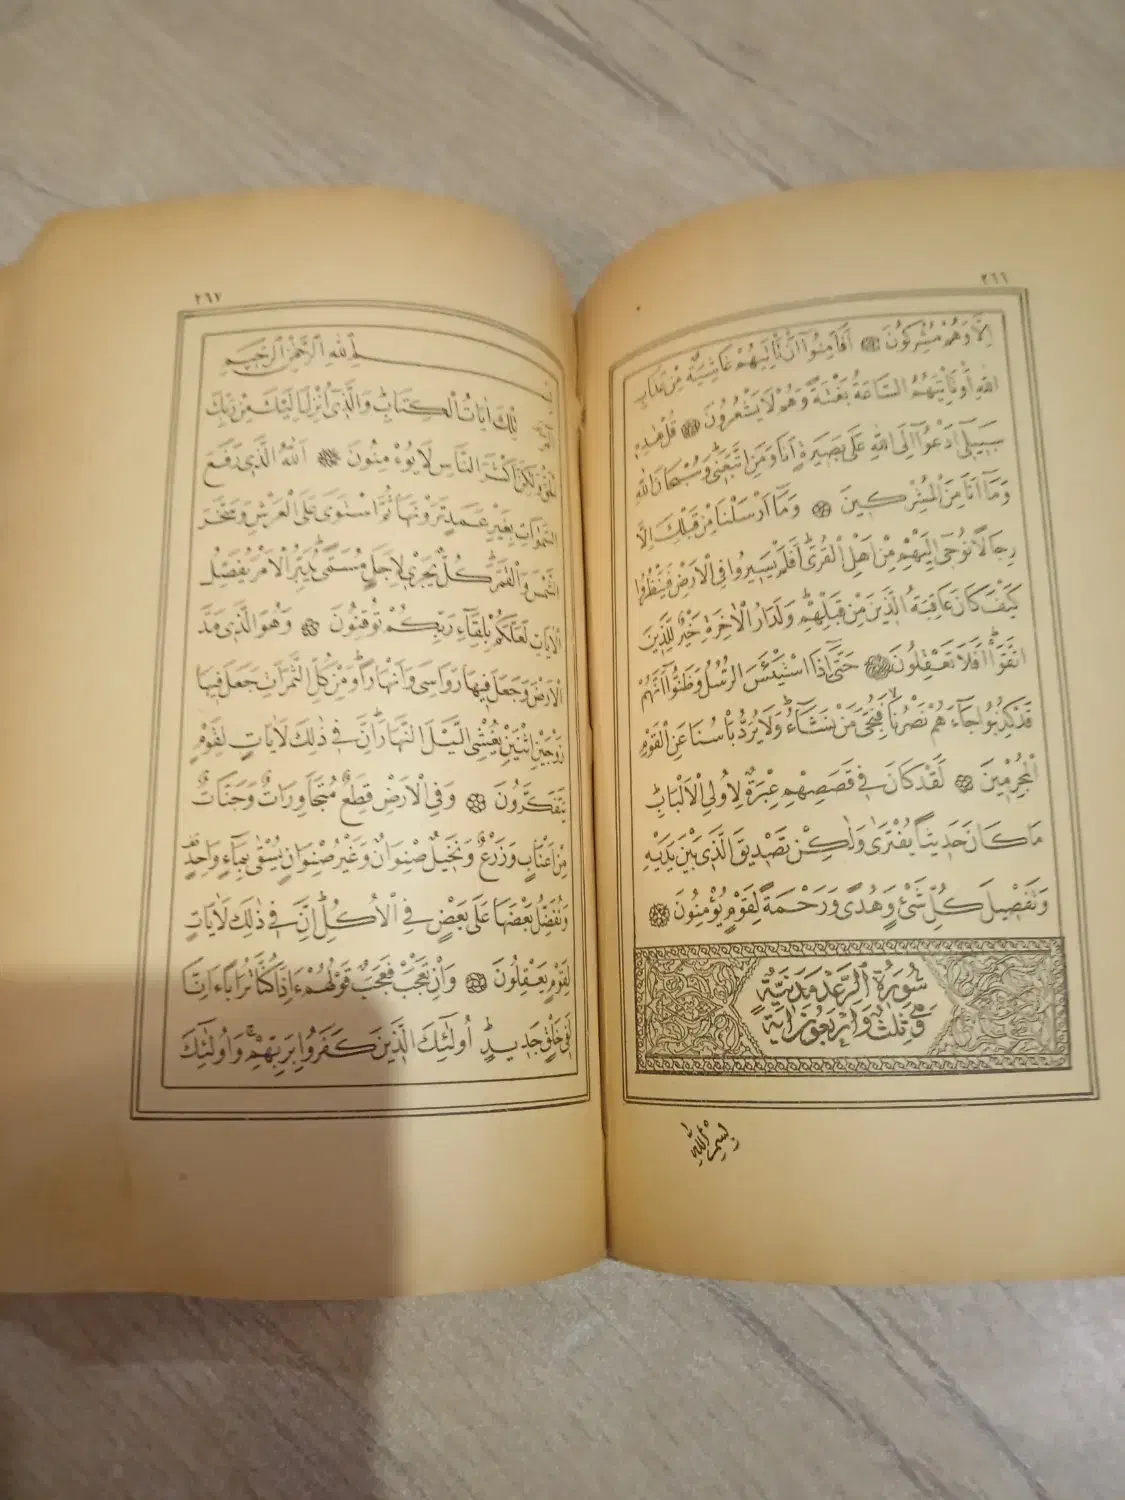 ٢٦٦
اِلَّا وَهُمْ مُشْرِكُونَ اَفَاَمِنُٓوا اَنْ تَأْتِيَهُمْ غَاشِيَةٌ مِنْ عَذَابِ
اللّٰهِ اَوْ تَأْتِيَهُمُ السَّاعَةُ بَغْتَةً وَهُمْ لَا يَشْعُرُونَ قُلْ هٰذِهِ
سَبِيلِٓى اَدْعُٓوا اِلَى اللّٰهِ عَلٰى بَصِيرَةٍ اَنَا۬ وَمَنِ اتَّبَعَنِى وَسُبْحَانَ اللّٰهِ
وَمَٓا اَنَا۬ مِنَ الْمُشْرِكِينَ وَمَٓا اَرْسَلْنَا مِنْ قَبْلِكَ اِلَّا
رِجَالًا نُوحِٓى اِلَيْهِمْ مِنْ اَهْلِ الْقُرٰى اَفَلَمْ يَسِيرُوا فِى الْاَرْضِ فَيَنْظُرُوا
كَيْفَ كَانَ عَاقِبَةُ الَّذِينَ مِنْ قَبْلِهِمْ وَلَدَارُ الْاٰخِرَةِ خَيْرٌ لِلَّذِينَ
اتَّقَوْا اَفَلَا تَعْقِلُونَ حَتّٰٓى اِذَا اسْتَيْـَٔسَ الرُّسُلُ وَظَنُّٓوا اَنَّهُمْ
قَدْ كُذِبُوا جَٓاءَهُمْ نَصْرُنَا فَنُجِّىَ مَنْ نَشَٓاءُ وَلَا يُرَدُّ بَأْسُنَا عَنِ الْقَوْمِ
الْمُجْرِمِينَ لَقَدْ كَانَ فِى قَصَصِهِمْ عِبْرَةٌ لِاُو۬لِى الْاَلْبَابِ
مَا كَانَ حَدِيثًا يُفْتَرٰى وَلٰكِنْ تَصْدِيقَ الَّذِى بَيْنَ يَدَيْهِ
وَتَفْصِيلَ كُلِّ شَىْءٍ وَهُدًى وَرَحْمَةً لِقَوْمٍ يُؤْمِنُونَ
سُورَةُ الرَّعْدِ مَدَنِيَّةٌ
وَهِىَ ثَلٰثٌ وَاَرْبَعُونَ اٰيَةً
بِسْمِ اللّٰهِ
٢٦٧
ـمِ اللّٰهِ الرَّحْمٰنِ الرَّحِيمِ
تِلْكَ اٰيَاتُ الْكِتَابِ وَالَّذِٓى اُنْزِلَ اِلَيْكَ مِنْ رَبِّكَ
الْحَقُّ وَلٰكِنَّ اَكْثَرَ النَّاسِ لَا يُؤْمِنُونَ اَللّٰهُ الَّذِى رَفَعَ
السَّمٰوَاتِ بِغَيْرِ عَمَدٍ تَرَوْنَهَا ثُمَّ اسْتَوٰى عَلَى الْعَرْشِ وَسَخَّرَ
الشَّمْسَ وَالْقَمَرَ كُلٌّ يَجْرِى لِاَجَلٍ مُسَمًّى يُدَبِّرُ الْاَمْرَ يُفَصِّلُ
الْاٰيَاتِ لَعَلَّكُمْ بِلِقَٓاءِ رَبِّكُمْ تُوقِنُونَ وَهُوَ الَّذِى مَدَّ
الْاَرْضَ وَجَعَلَ فِيهَا رَوَاسِىَ وَاَنْهَارًا وَمِنْ كُلِّ الثَّمَرَاتِ جَعَلَ فِيهَا
زَوْجَيْنِ اثْنَيْنِ يُغْشِى الَّيْلَ النَّهَارَ اِنَّ فِى ذٰلِكَ لَاٰيَاتٍ لِقَوْمٍ
يَتَفَكَّرُونَ وَفِى الْاَرْضِ قِطَعٌ مُتَجَاوِرَاتٌ وَجَنَّاتٌ
مِنْ اَعْنَابٍ وَزَرْعٌ وَنَخِيلٌ صِنْوَانٌ وَغَيْرُ صِنْوَانٍ يُسْقٰى بِمَٓاءٍ وَاحِدٍ
وَنُفَضِّلُ بَعْضَهَا عَلٰى بَعْضٍ فِى الْاُكُلِ اِنَّ فِى ذٰلِكَ لَاٰيَاتٍ
لِقَوْمٍ يَعْقِلُونَ وَاِنْ تَعْجَبْ فَعَجَبٌ قَوْلُهُمْ ءَاِذَا كُنَّا تُرَابًا ءَاِنَّا
لَفِى خَلْقٍ جَدِيدٍ اُو۬لٰٓئِكَ الَّذِينَ كَفَرُوا بِرَبِّهِمْ وَاُو۬لٰٓئِكَ